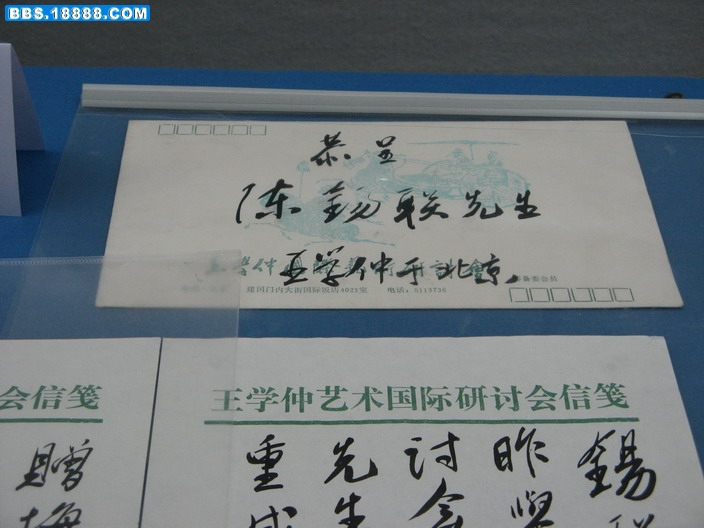 BBS.18888.COM
恭呈
陈锡联先生
王学仲于北京
建国门内大街国际饭店4022室 电话：5113736
会信笺
王学仲艺术国际研讨会信笺
赠
重先讨昨锡